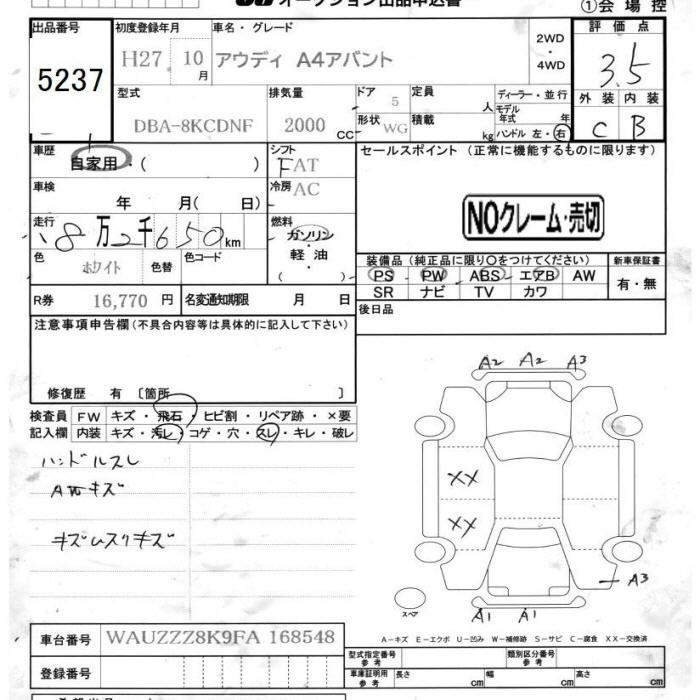 オークション出品申込書
①会場控
出品番号
5237
初度登録年月
H27 10月
車名・グレード
アウディ A4アバント
2WD
・
4WD
評価点
3.5
外装 内装
C B
型式
DBA-8KCDNF
排気量
2000 CC
ドア 5
形状 WG
定員 人
積載 kg
ディーラー・並行
モデル年式 年
ハンドル 左・右
車歴
自家用・( )
シフト
FAT
セールスポイント (正常に機能するものに限ります)
車検
年 月( 日)
冷房 AC
NOクレーム・売切
走行
8万2千650km
燃料
ガソリン
・
軽油
( )
色
ホワイト
色替
色コード
装備品 (純正品に限り○をつけてください)
新車保証書
PS PW ABS エアB AW
SR ナビ TV カワ
有・無
R券 16,770 円
名変通知期限 月 日
後日品
注意事項申告欄 (不具合内容等は具体的に記入して下さい)
修復歴 有 〔箇所 〕
検査員
記入欄
FW キズ・飛石・ヒビ割・リペア跡・×要
内装 キズ・汚レ・コゲ・穴・スレ・キレ・破レ
ハンドルスレ
キズ
A2 A2 A3
XX
XX
A3
A1 A1
スペア
A-キズ E-エクボ U-凹み W-補修跡 S-サビ C-腐食 XX-交換済
車台番号 WAUZZZ8K9FA 168548
登録番号
型式指定番号
参考
類別区分番号
参考
車庫証明用
参考
長さ cm 幅 cm 高さ cm